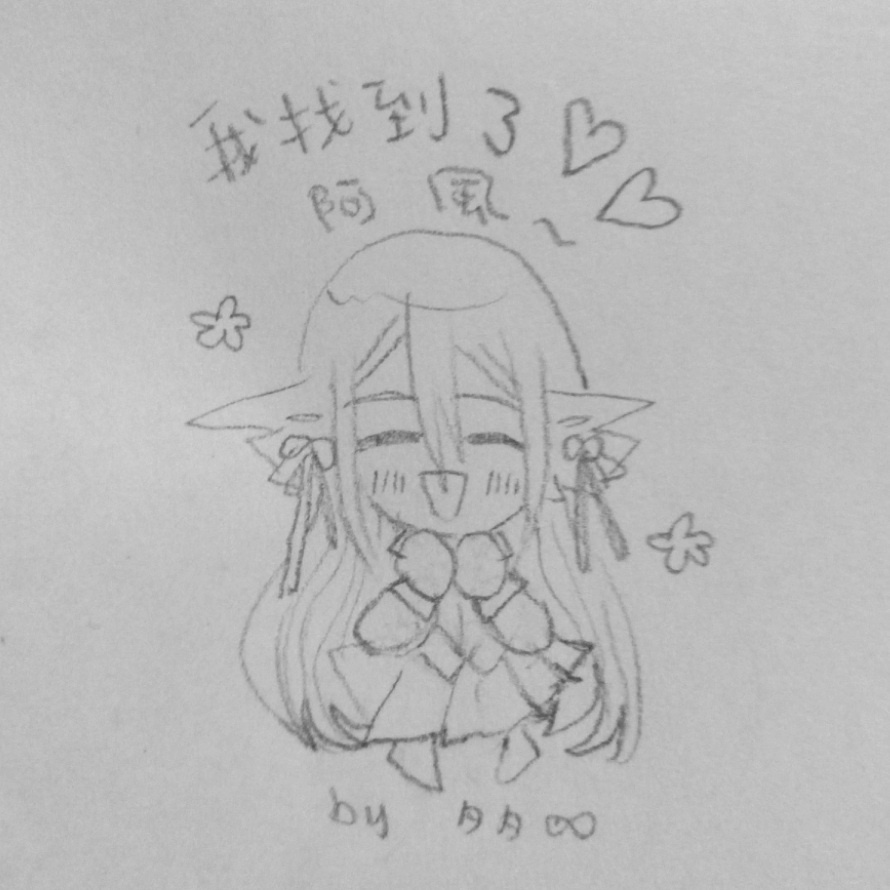 我找到了♡♡
阿風~
by 月月∞